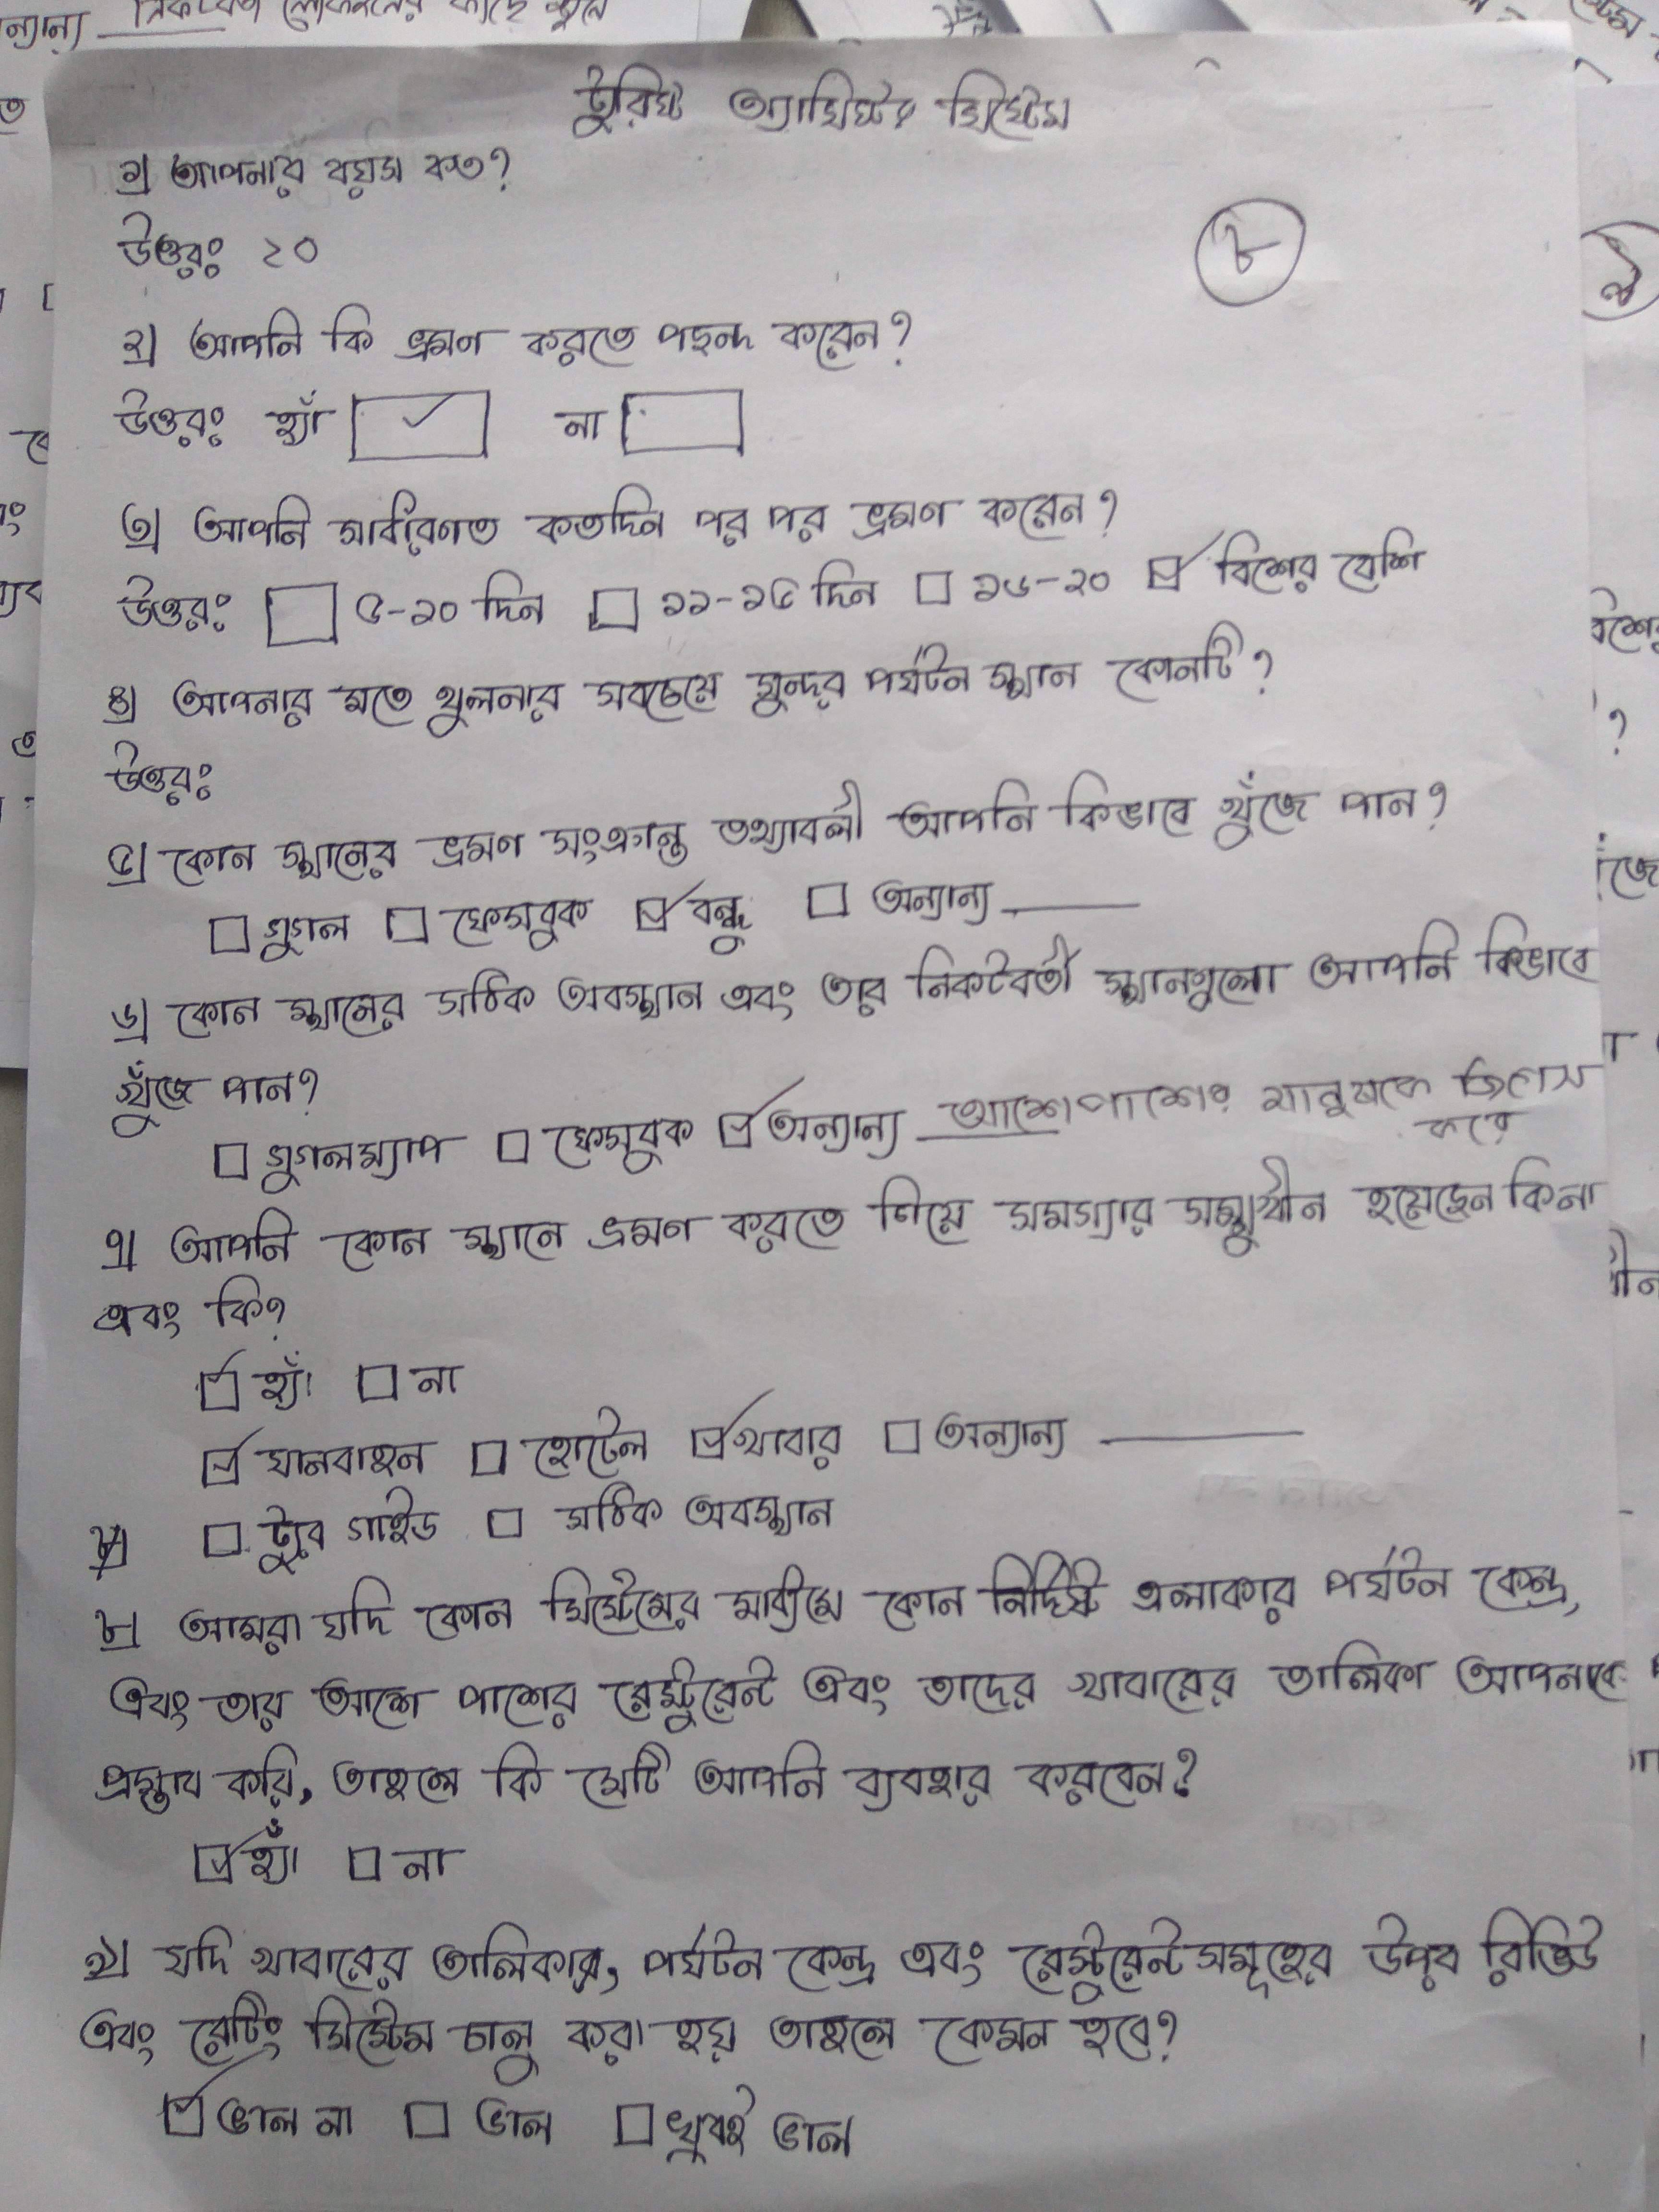 টুরিস্ট অ্যাসিস্টং সিস্টেম
১) আপনার বয়স কত?
উত্তরঃ ২০
৮
২) আপনি কি ভ্রমণ করতে পছন্দ করেন?
উত্তরঃ হ্যাঁ ✓ না
৩) আপনি সাধারণত কতদিন পর পর ভ্রমণ করেন?
উত্তরঃ ৫-১০ দিন ১১-১৫ দিন ১৬-২০ ✓ বিশের বেশি
৪) আপনার মতে খুলনার সবচেয়ে সুন্দর পর্যটন স্থান কোনটি?
উত্তরঃ
৫) কোন স্থানের ভ্রমণ সংক্রান্ত তথ্যাবলী আপনি কিভাবে খুঁজে পান?
গুগল ফেসবুক ✓ বন্ধু অন্যান্য
৬) কোন স্থানের সঠিক অবস্থান এবং তার নিকটবর্তী স্থানগুলো আপনি কিভাবে
খুঁজে পান?
গুগলম্যাপ ফেসবুক ✓ অন্যান্য আশেপাশের মানুষকে
করে
৭) আপনি কোন স্থানে ভ্রমণ করতে গিয়ে সমস্যার সম্মুখীন হয়েছেন কিনা
এবং কি?
✓ হ্যাঁ না
✓ যানবাহন হোটেল ✓ খাবার অন্যান্য
ট্যুর গাইড সঠিক অবস্থান
৮) আমরা যদি কোন সিস্টেমের মাধ্যমে কোন নির্দিষ্ট এলাকার পর্যটন কেন্দ্র,
এবং তার আশে পাশের রেস্টুরেন্ট এবং তাদের খাবারের তালিকা আপনাকে
প্রস্তাব করি, তাহলে কি সেটি আপনি ব্যবহার করবেন?
✓ হ্যাঁ না
৯) যদি খাবারের তালিকার, পর্যটন কেন্দ্র এবং রেস্টুরেন্ট সমূহের উপর রিভিউ
এবং রেটিং সিস্টেম চালু করা হয় তাহলে কেমন হবে?
✓ ভাল না ভাল খুবই ভাল